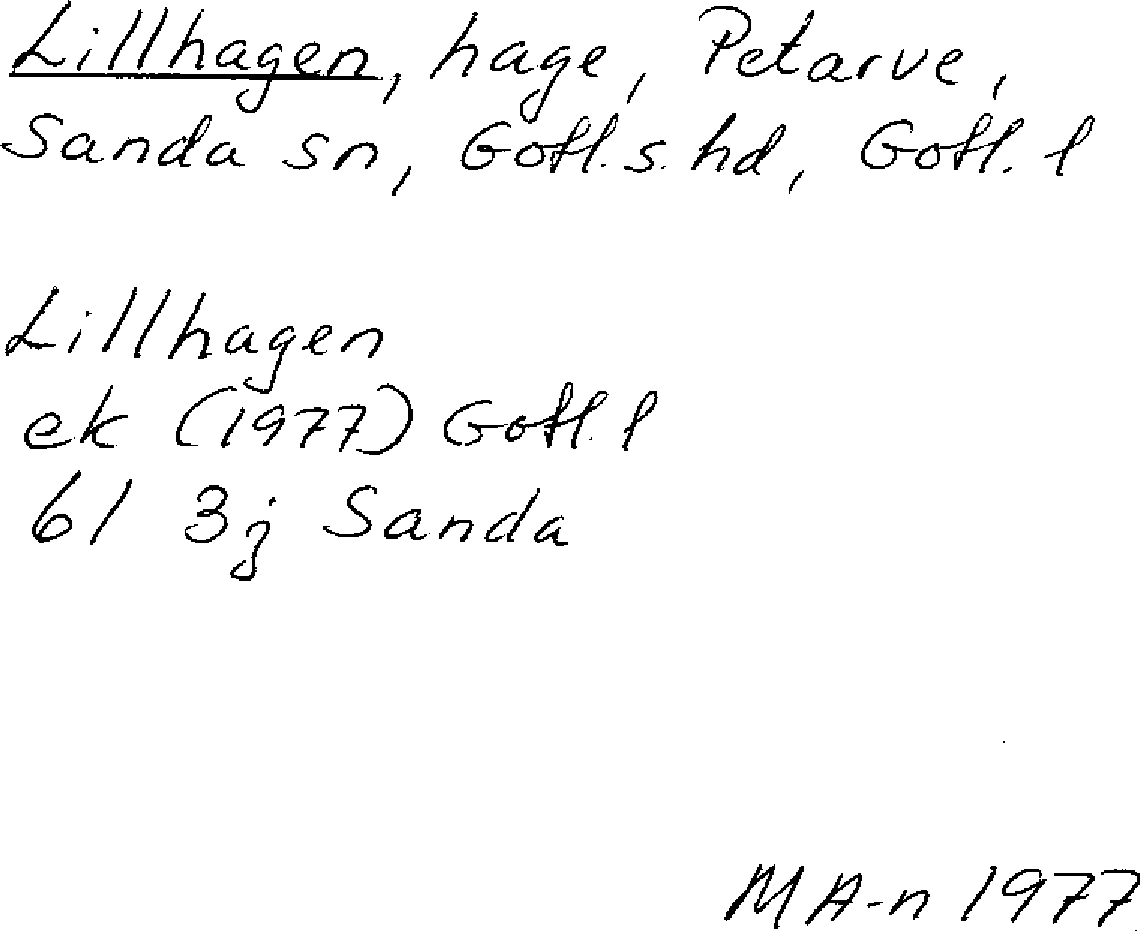 Lillhagen, hage, Petarve,
Sanda sn, Gotl. s. hd, Gotl. l
Lillhagen
ek (1977) Gotl. l
61 3j Sanda
MA-n 1977